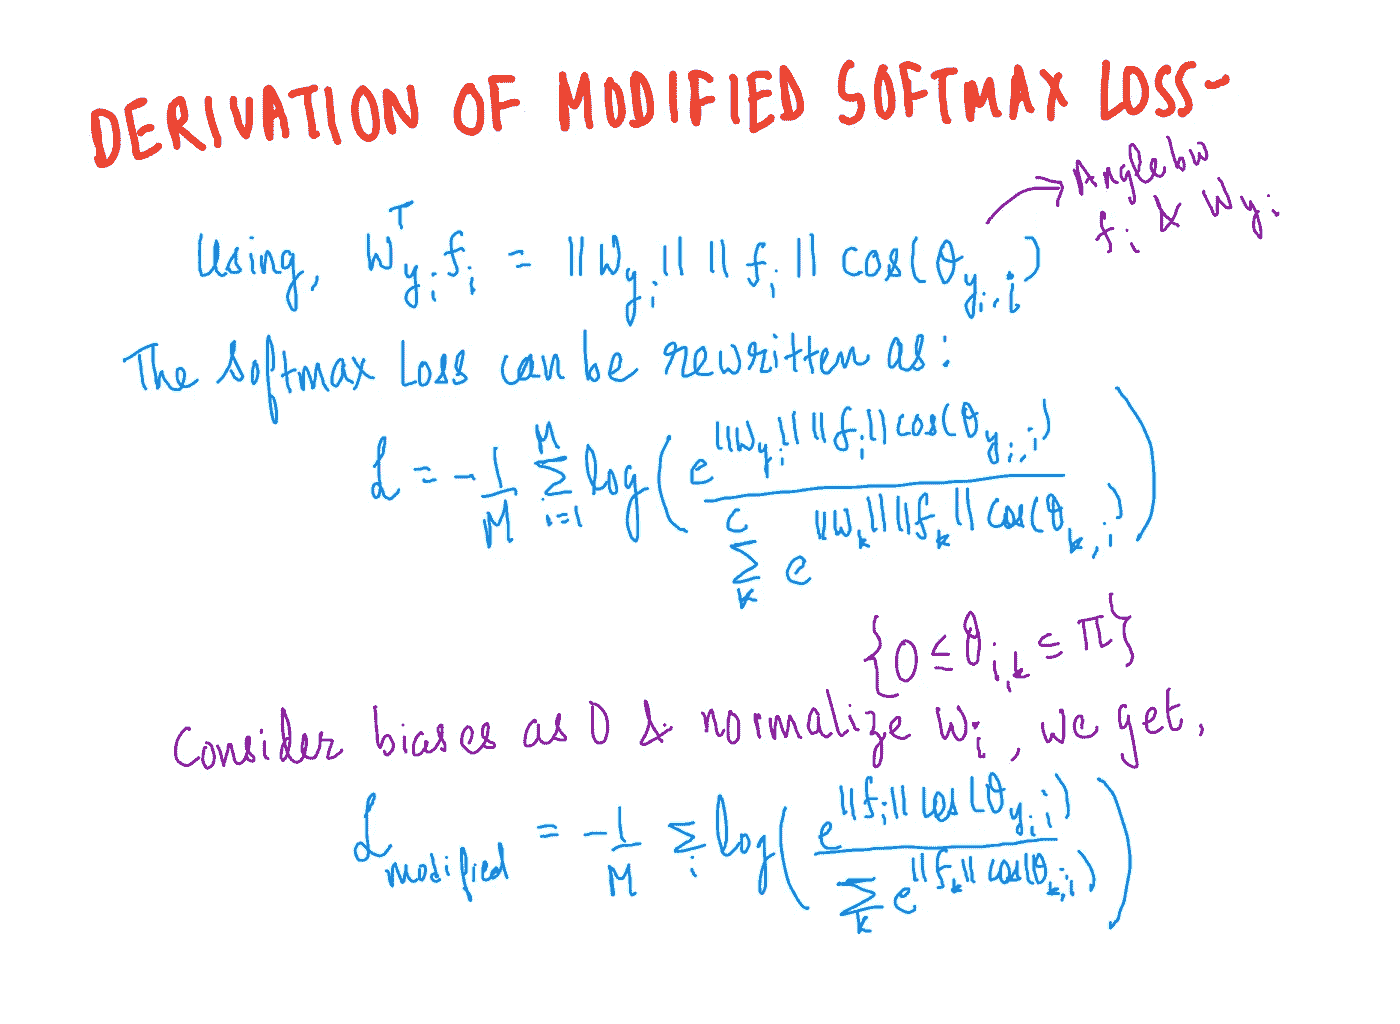 DERIVATION OF MODIFIED SOFTMAX LOSS-
Angle bw
f_i & W_{y_i}
Using, W^T_{y_i} f_i = ||W_{y_i}|| ||f_i|| cos(θ_{y_i,i})
The Softmax Loss can be rewritten as:
L = -1/M Σ_{i=1}^{M} log( e^{||W_{y_i}|| ||f_i|| cos(θ_{y_i,i})} / Σ_k^C e^{||W_k|| ||f_k|| cos(θ_{k,i})} )
{0 ≤ θ_{i,k} ≤ π}
Consider biases as 0 & normalize W_i, we get,
L_modified = -1/M Σ_i log( e^{||f_i|| cos(θ_{y_i,i})} / Σ_k e^{||f_k|| cos(θ_{k,i})} )